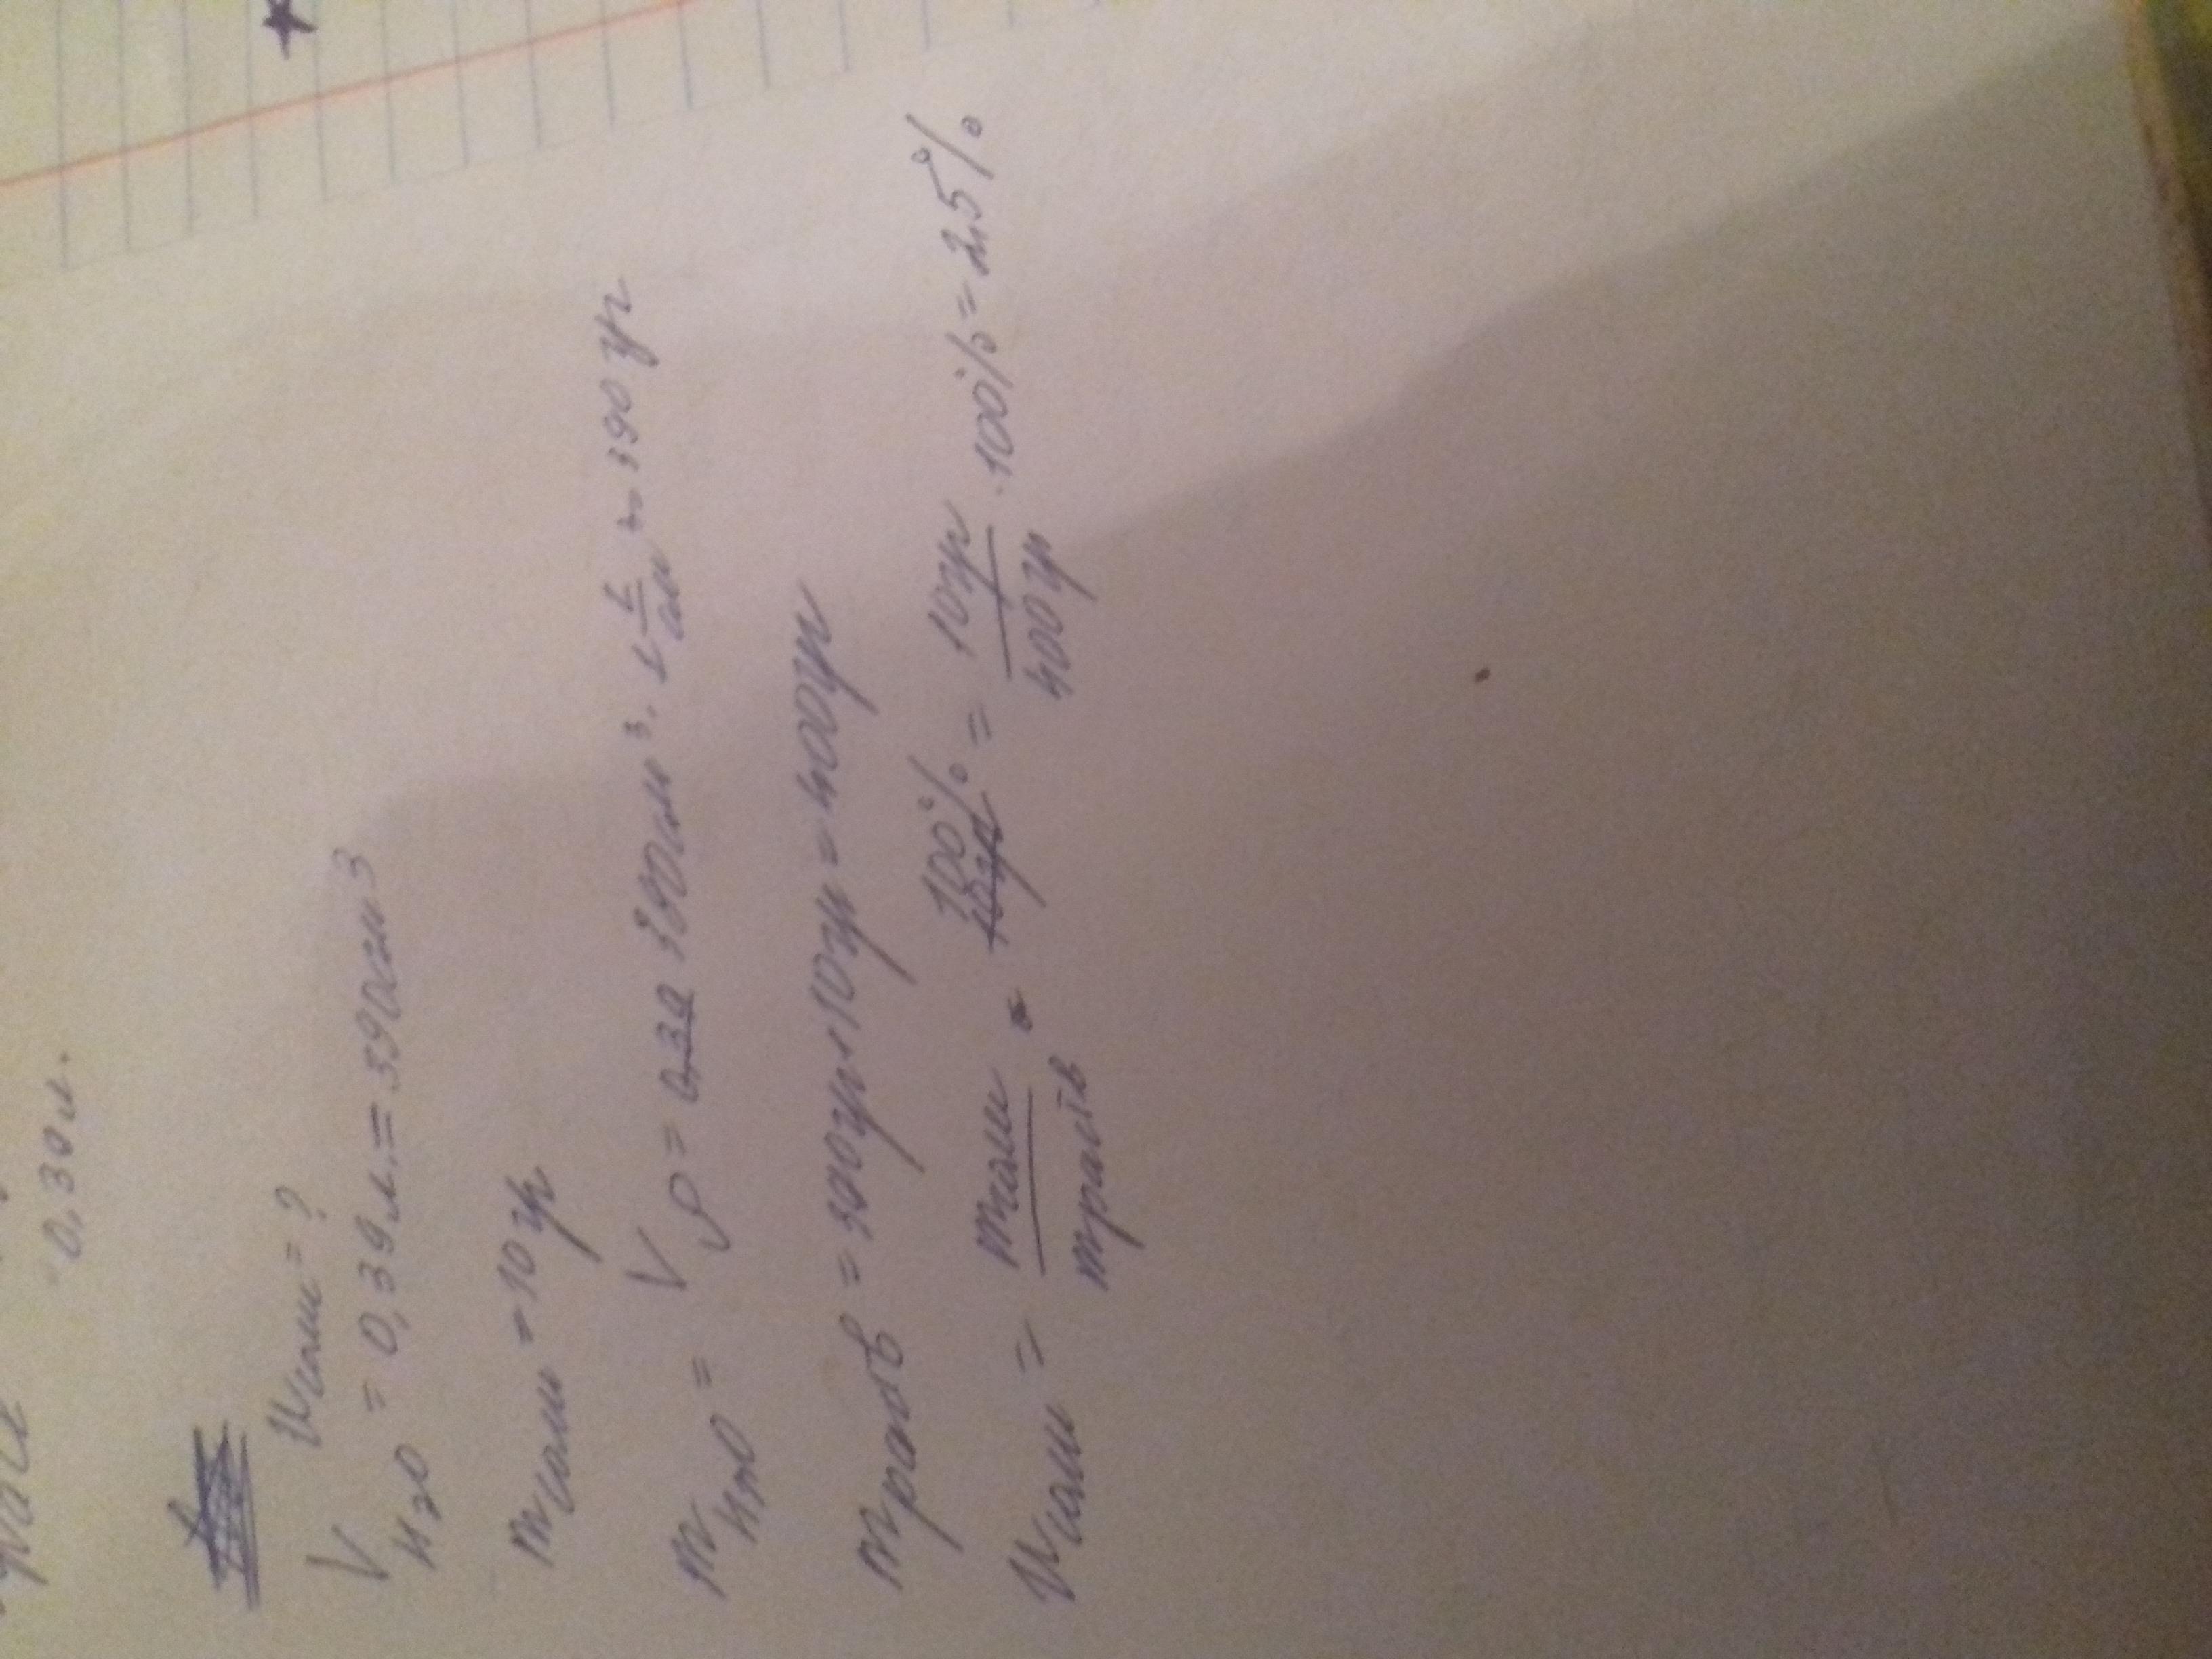 0,39 л.
W соли = ?
V H2O = 0,39 л. = 390 см³
m соли = 10 гр
m H2O = Vρ = 390 см³ · 1 г/см³ = 390 гр
m раств = 390 гр + 10 гр = 400 гр
W соли = m соли / m раств · 100% = 10 гр / 400 гр · 100% = 2,5%